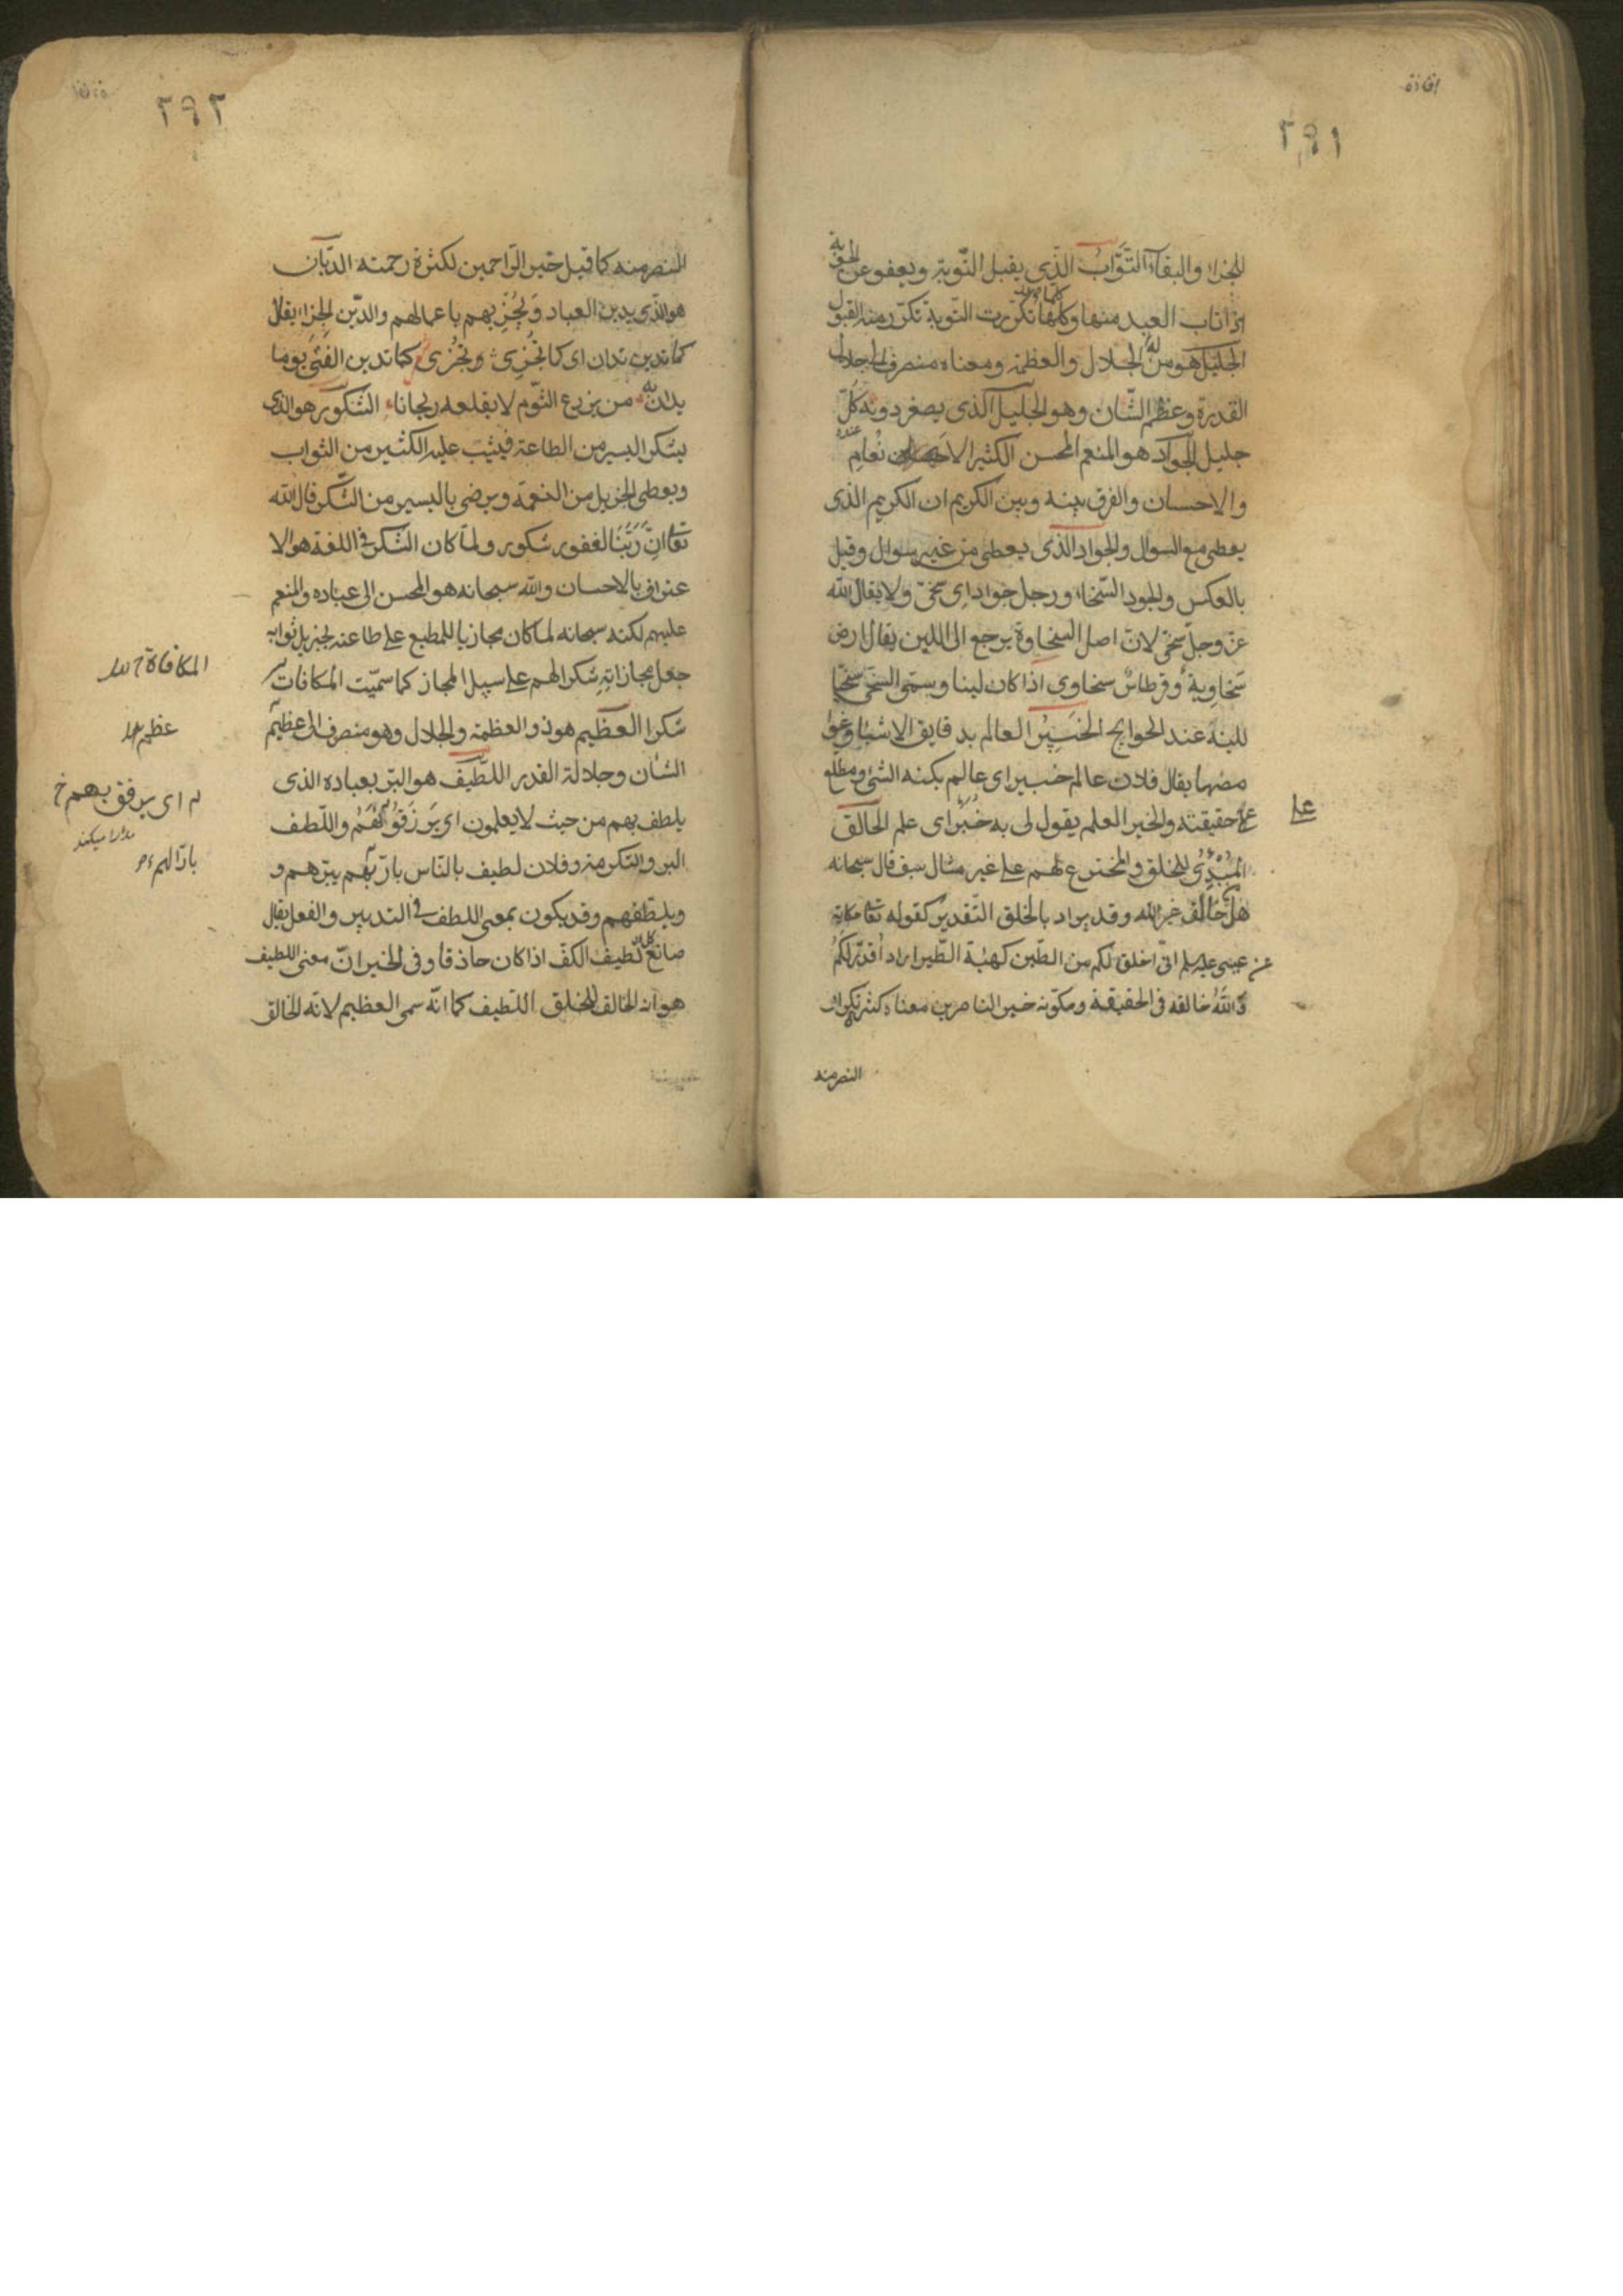 افاده
٢٩١
للجزاء والبقاء التَّوَّابُ الذى يقبل التّوبة ويعفو عن الحوبة
اذا تاب العبد منها وكلّما تكرّرت التّوبة تكرّر منه القبول
الجليل هو من الجلال والعظمة ومعناه منصرف الى جلال
القدرة وعظم الشّان وهو الجليل الذى يصغر دونه كلّ
جليل الجواد هو المنعم المحسن الكثير الانعام
والاحسان والفرق بينه وبين الكريم ان الكريم الذى
يعطى مع السوال والجواد الذى يعطى من غير سوال وقيل
بالعكس والجود السّخاء ورجل جواد اى سخىّ ولا يقال الله
عزّ وجلّ سخىّ لانّ اصل السخاوة يرجع الى اللين يقال ارض
سخاوية وقرطاسٌ سخاوى اذا كان لينا وسمّى السخىّ سخيّا
للينه عند الحوايج الخَبِيرُ العالم بدقايق الاشياء وغوا
مضها يقال فلان عالم خبير اى عالم بكنه الشئ ومطلع
على حقيقته والخبر العلم يقول لى به خُبْرٌ اى علم الخالق
على
المُبْدِئُ للخلق والمخترع لهم على غير مثال سبق قال سبحانه
هل من خالق غير الله وقد يراد بالخلق التّقدير كقوله تعا حكاية
عن عيسى عليه سلم انّى اخلق لكم من الطّين كهيئة الطّير اراد أُقدّر لكم
وَاللهُ خالقه فى الحقيقة ومكوّنه خير الناصرين معناه كثرة تكرار
النصر منه
٢٩٢
النصر منه كما قيل خير الرّاحمين لكثرة رحمته الديّان
هو الذى يدين العباد وَيُجْزِيهم باعمالهم والدّين الجزاء يقال
كما تدين تدان اى كما تُجْزِى تُجْزى كما تدين الفتى يوما
يدان به من يزرع الثّوم لا يقلعه ريحانا الشَّكور هو الذى
يشكر اليسير من الطاعة فيثيب عليه الكثير من الثواب
ويعطى الجزيل من النعمة ويرضى باليسير من الشّكر قال الله
تعا انّ رَبَّنا لغفور شكور ولمّا كان الشكر فى اللغة هو الا
عتراف بالاحسان والله سبحانه هو المحسن الى عباده والمنعم
عليهم لكنه سبحانه لما كان مجازيا للمطيع على طاعته بجزيل ثوابه
جعل مجازاته شكرا لهم على سبيل المجاز كما سمّيت المكافات
المكافاة
شكرا العظيم هو ذو العظمة والجلال وهو منصرف الى عظيم
عظم
الشان وجلالة القدر اللّطيف هو البرّ بعباده الذى
يلطف بهم من حيث لا يعلمون اى يرزقهم واللّطف
اى يرفق بهم خ
مدارا ميكند
البر والتكرمة وفلان لطيف بالنّاس بارّ بهم يبرّهم و
بارّ لهم
ويلطفهم وقد يكون بمعنى اللطف فى التدبير والفعل يقال
صانع لطيف الكفّ اذا كان حاذقا وفى الخبر انّ معنى اللطيف
هو انه الخالق للخلق اللّطيف كما انّه سمى العظيم لانّه الخالق